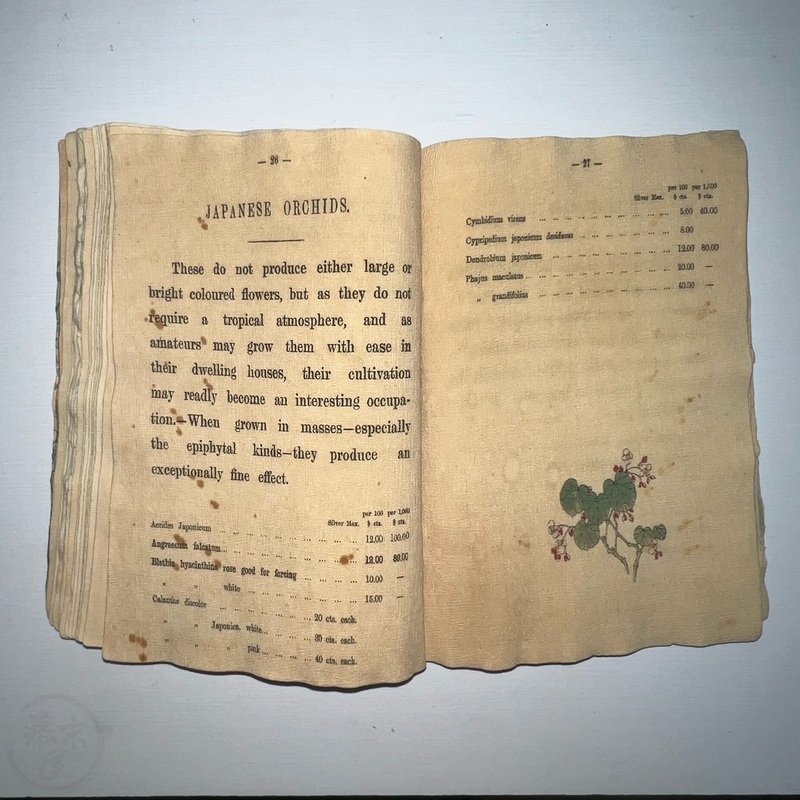 — 26 —
JAPANESE ORCHIDS.
These do not produce either large or
bright coloured flowers, but as they do not
require a tropical atmosphere, and as
amateurs may grow them with ease in
their dwelling houses, their cultivation
may readly become an interesting occupa-
tion.—When grown in masses—especially
the epiphytal kinds—they produce an
exceptionally fine effect.
per 100 per 1,000
Silver Mex. $ cts. $ cts.
Aerides Japonicum ... ... ... ... ... 12.00 100.00
Angraecum falcatum ... ... ... ... ... 12.00 80.00
Blethia hyacinthina rose good for forcing ... ... ... 10.00 —
„ white ... ... ... ... 15.00 —
Calanthe discolor ... ... ... ... 20 cts. each.
„ „ Japonica, white ... ... ... 30 cts. each.
„ „ „ pink ... ... ... 40 cts. each.
— 27 —
per 100 per 1,000
Silver Mex. $ cts. $ cts.
Cymbidium virens ... ... ... ... ... 5.00 40.00
Cypripedium japonicum ... ... ... ... 8.00
Dendrobium japonicum ... ... ... ... 12.00 80.00
Phajus maculatus ... ... ... ... ... 20.00 —
„ grandifolius ... ... ... ... ... 40.00 —
幕末屋